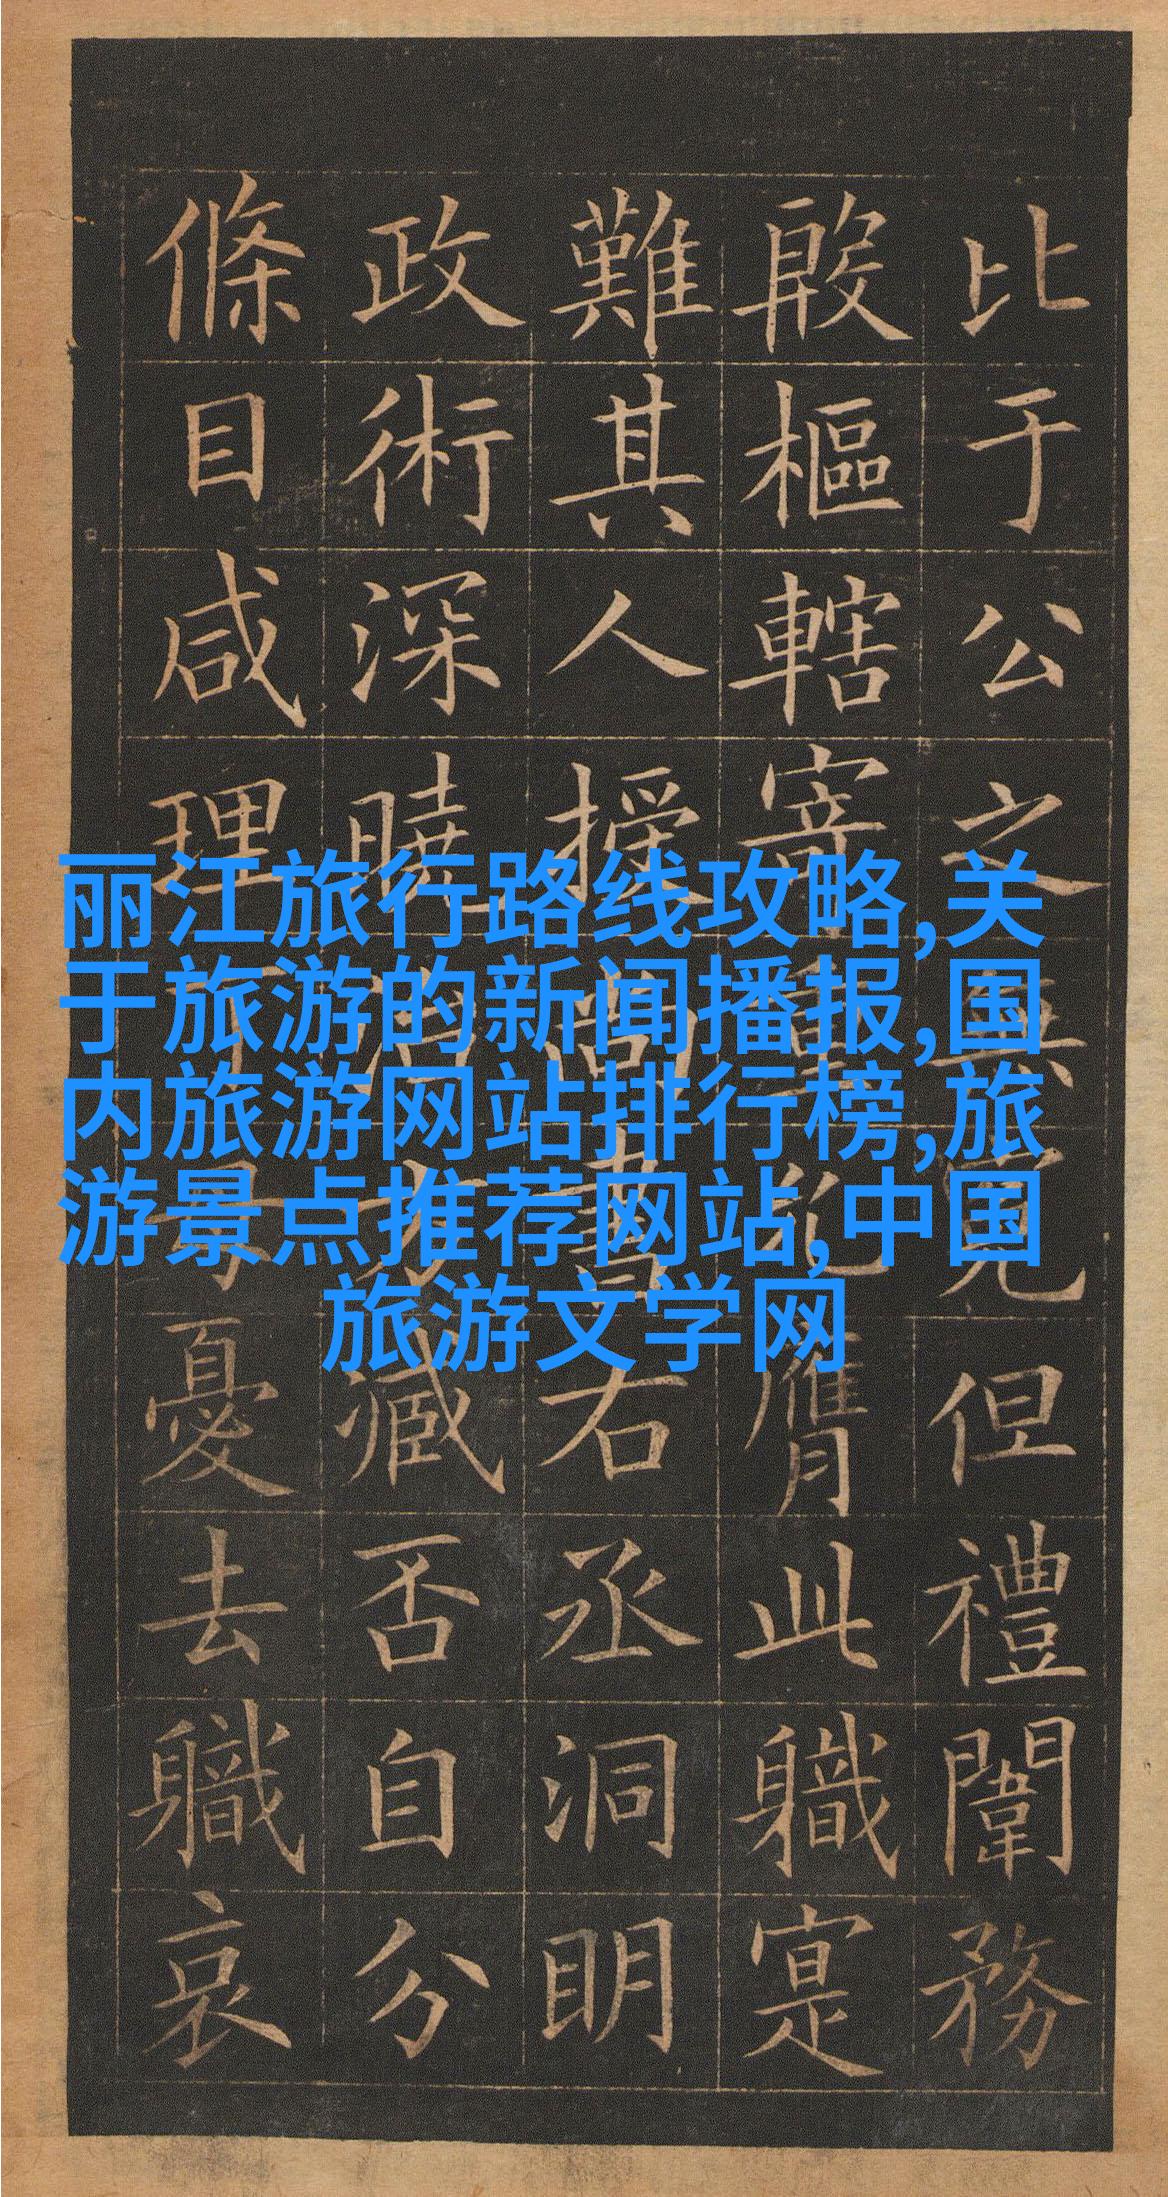 丽江旅行路线攻略,关
于旅游的新闻播报,国
内旅游网站排行榜,旅
游景点推荐网站,中国
旅游文学网
比于公之無冤但禮闈務
殷樞轄寄重允膺此職寔
難其人授尚書右丞洞明
政術深曉治方臧否自分
條目咸理丁母憂去職哀